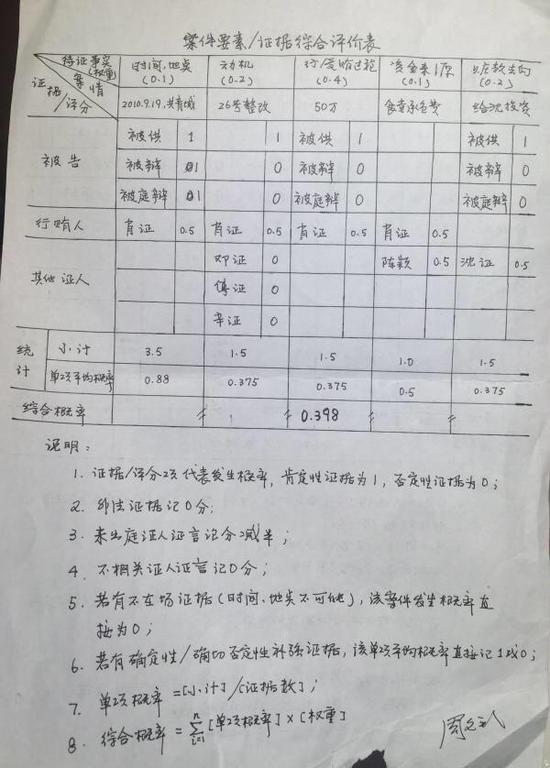 案件要素/证据综合评价表
待证事实(权重) 案情 证据/评分 时间,地点(0.1) 动机(0.2) 行受贿过程(0.4) 资金来源(0.1) 赃款去向(0.2)
2010.9.19,共青城 26号整改 50万 食堂承包费 给沈投资
被告 被供 1 1 被供 1 被供 1
被辩 1 0 被辩 0 被辩 0
被庭辩 1 0 被庭辩 0 被庭辩 0
行贿人 肖证 0.5 肖证 0.5 肖证 0.5 肖证 0.5
其他证人 邓证 0 陈颖 0.5 沈证 0.5
傅证 0
辛证 0
统计 小计 3.5 1.5 1.5 1.0 1.5
单项平均概率 0.88 0.375 0.375 0.5 0.375
综合概率 0.398
说明:
1. 证据/评分2项代表发生概率,肯定性证据为1,否定性证据为0;
2. 非法证据记0分;
3. 未出庭证人证言记分减半;
4. 不相关证人证言记0分;
5. 若有不在场证据(时间、地点不可能),该案件发生概率直
接为0;
6. 若有确定性/确切否定性补强证据,该单项平均概率直接记1或0;
7. 单项概率=[小计]/[证据数];
8. 综合概率=∑ⁿᵢ₌₁[单项概率]×[权重]